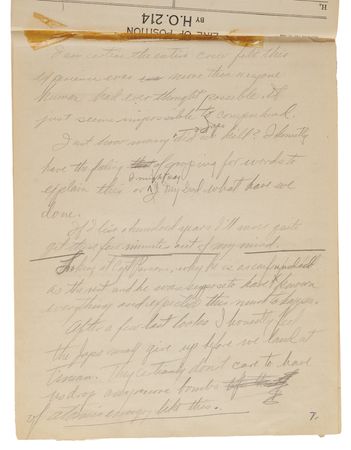 LINE OF POSITION
BY H.O. 214
H.
I am certain the entire crew felt this
experience was more than anyone
human had ever thought possible. It
just seems impossible to comprehend.
Just how many did we kill? I honestly
have the feeling of groping for words to
explain this or I might say My God what have we
done.
If I live a hundred years I'll never quite
get these few minutes out of my mind.
Looking at Capt Parsons, why he is as confounded
as the rest and he was supposed to have known
everything and expected this to happen.
After a few last looks I honestly feel
the Japs may give up before we land at
Tinian. They certainly don't care to have
us drop any more bombs
of atomic energy like this.
7.